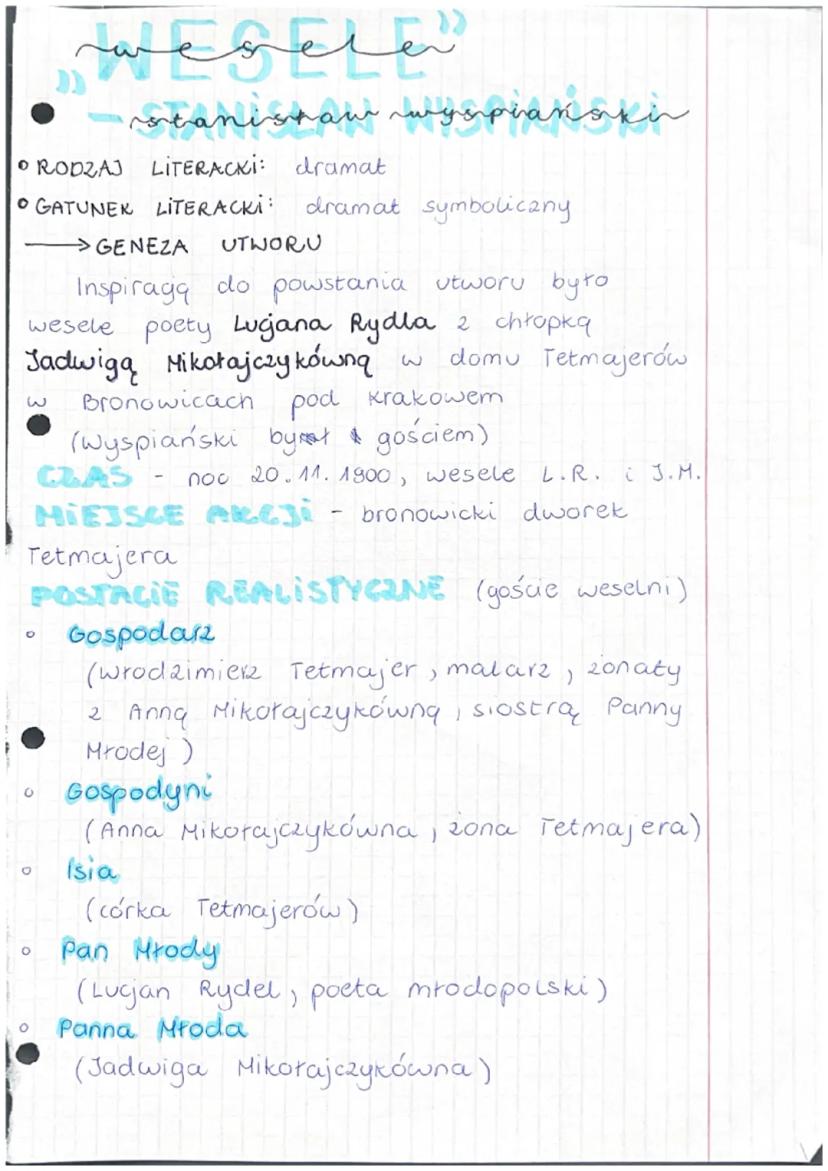 „WESELE”
- STANISŁAW WYSPIAŃSKI
RODZAJ LITERACKI: dramat
GATUNEK LITERACKI: dramat symboliczny
→ GENEZA UTWORU
Inspiracją do powstania utworu było
wesele poety Lucjana Rydla z chłopką
Jadwigą Mikołajczykówną w domu Tetmajerów
w Bronowicach pod Krakowem
(Wyspiański był gościem)
CZAS - noc 20.11.1900, wesele L.R. i J.M.
MIEJSCE AKCJI - bronowicki dworek
Tetmajera
POSTACIE REALISTYCZNE (goście weselni)
Gospodarz
(Włodzimierz Tetmajer, malarz, żonaty
z Anną Mikołajczykówną, siostrą Panny
Młodej)
Gospodyni
(Anna Mikołajczykówna, żona Tetmajera)
Isia
(córka Tetmajerów)
Pan Młody
(Lucjan Rydel, poeta młodopolski)
Panna Młoda
(Jadwiga Mikołajczykówna)